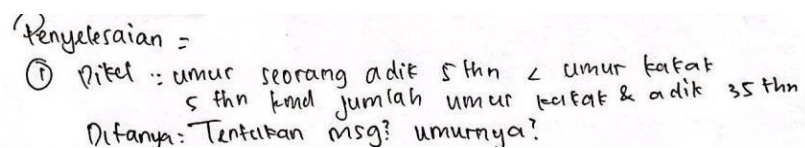 Penyelesaian =
① Diket : umur seorang adik 5 thn < umur kakak
5 thn kmd jumlah umur kakak & adik 35 thn
Ditanya : Tentukan msg² umurnya?